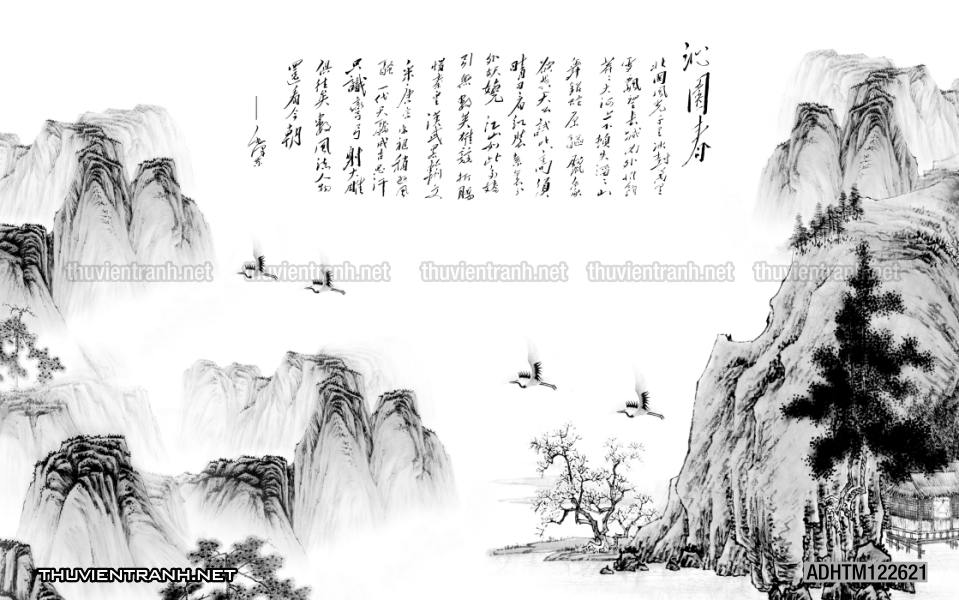 沁園春
北國風光千里冰封萬里
雪飄望長城內外惟餘
莽莽大河上下頓失滔滔山
舞銀蛇原驅臘象
欲與天公試比高須
晴日看紅裝素裹分
外妖嬈江山如此多嬌
引無數英雄競折腰
惜秦皇漢武略輸文
采唐宗宋祖稍遜風
騷一代天驕成吉思汗
只識彎弓射大雕
俱往矣數風流人物
還看今朝
thuvientranh.net thuvientranh.net thuvientranh.net thuvientranh.net thuvientranh.net
THUVIENTRANH.NET
ADHTM122621